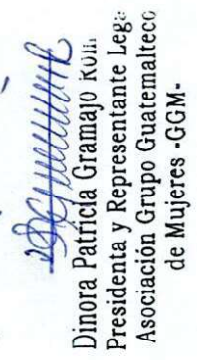 Dinora Patricia Gramajo
Presidenta y Representante Lega
Asociación Grupo Guatemalteco
de Mujeres -GGM-